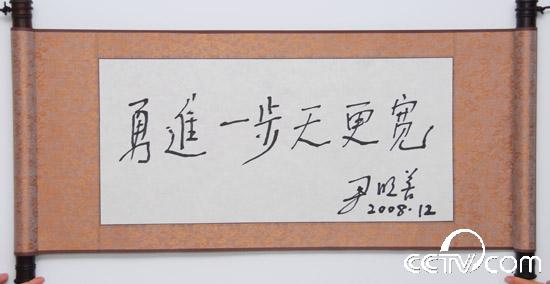 勇進一步天更宽
尹明善
2008.12
CCTV.com